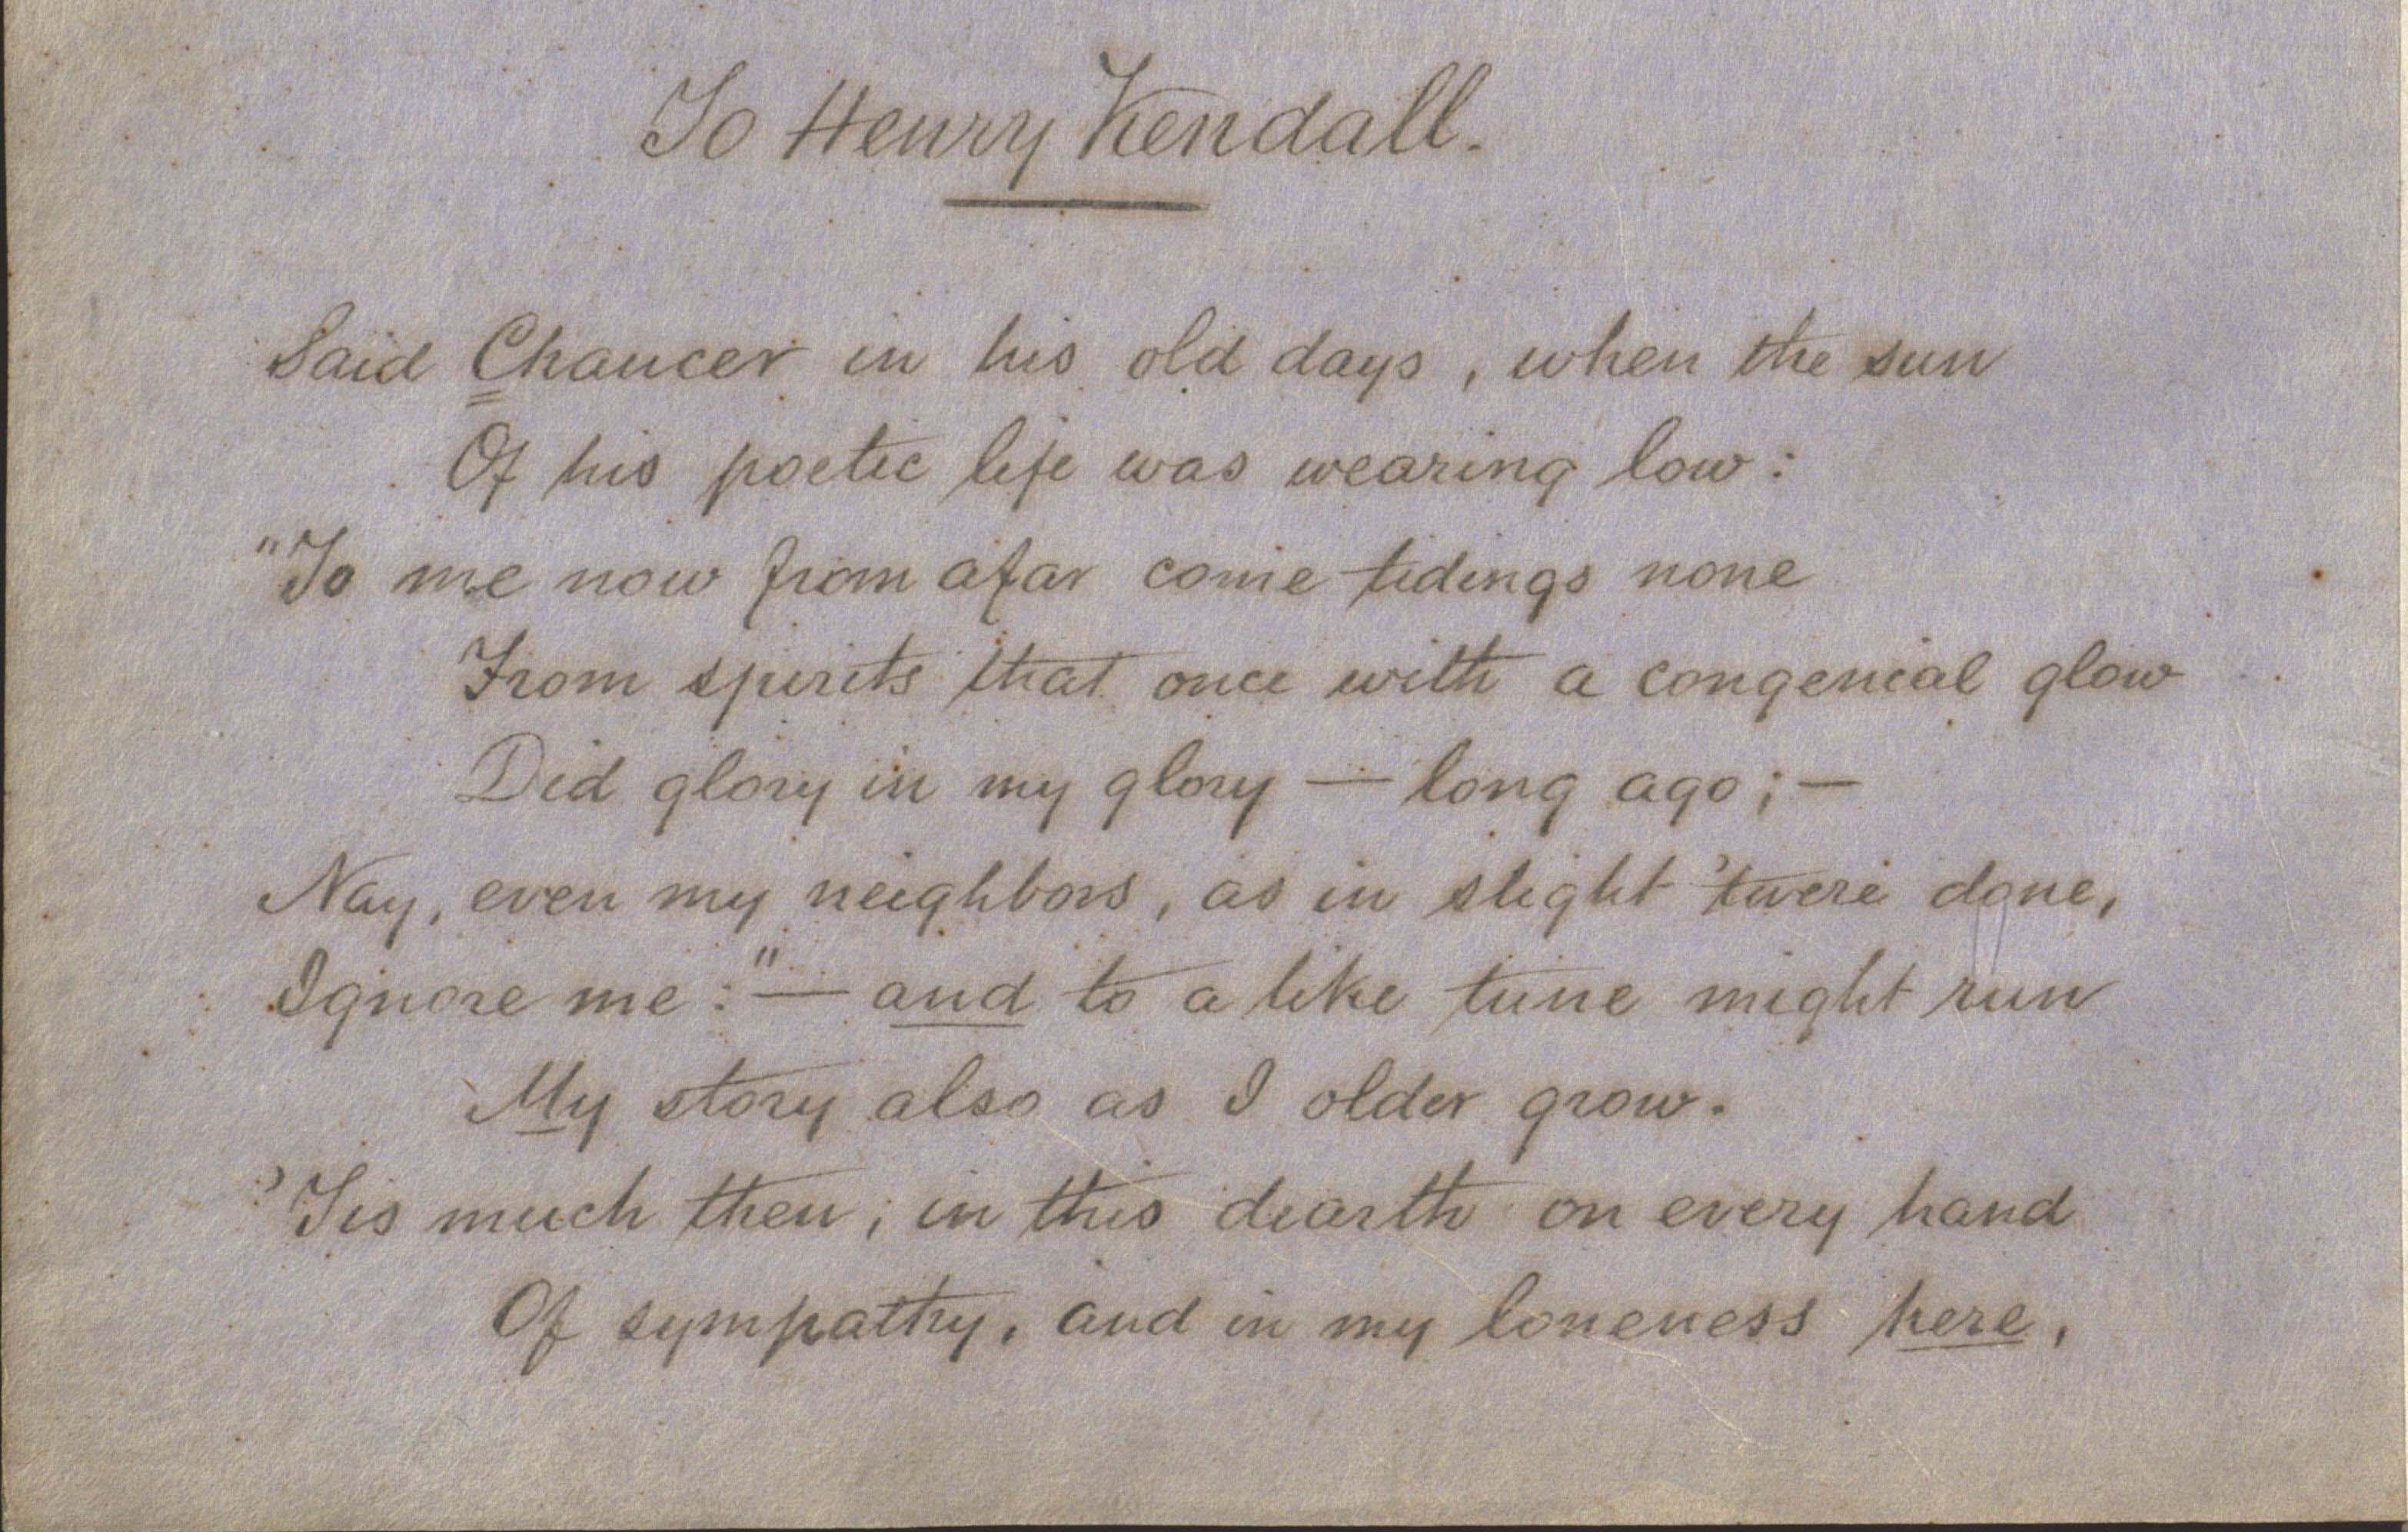 To Henry Kendall.
Said Chaucer in his old days, when the sun
Of his poetic life was wearing low:
"To me now from afar come tidings none
From spirits that once with a congenial glow
Did glory in my glory — long ago; —
Nay, even my neighbors, as in slight 'twere done,
Ignore me:" — and to a like tune might run
My story also as I older grow.
'Tis much then, in this dearth on every hand
Of sympathy, and in my loneness here,